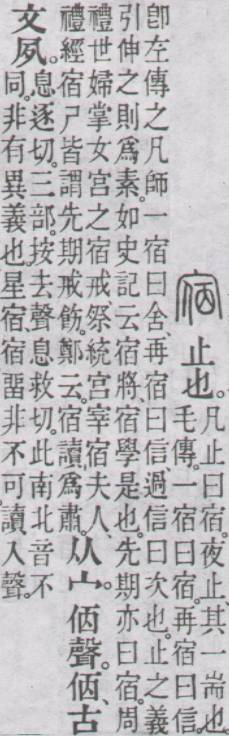 宿 止也。
凡止曰宿。夜止、其一耑也。
毛傳。一宿曰宿。再宿曰信。
卽左傳之凡師一宿曰舍、再宿曰信、過信曰次也。止之義
引伸之則爲素。如史記云宿將、宿學是也。先期亦曰宿。周
禮世婦掌女宮之宿戒、祭統宮宰宿夫人、
禮經宿尸皆謂先期戒飭。鄭云。宿讀爲肅。
从宀。㑉聲。㑉、古
文夙。
息逐切。三部。按去聲息救切。此南北音不
同。非有異義也。星宿、宿畱非不可讀入聲。